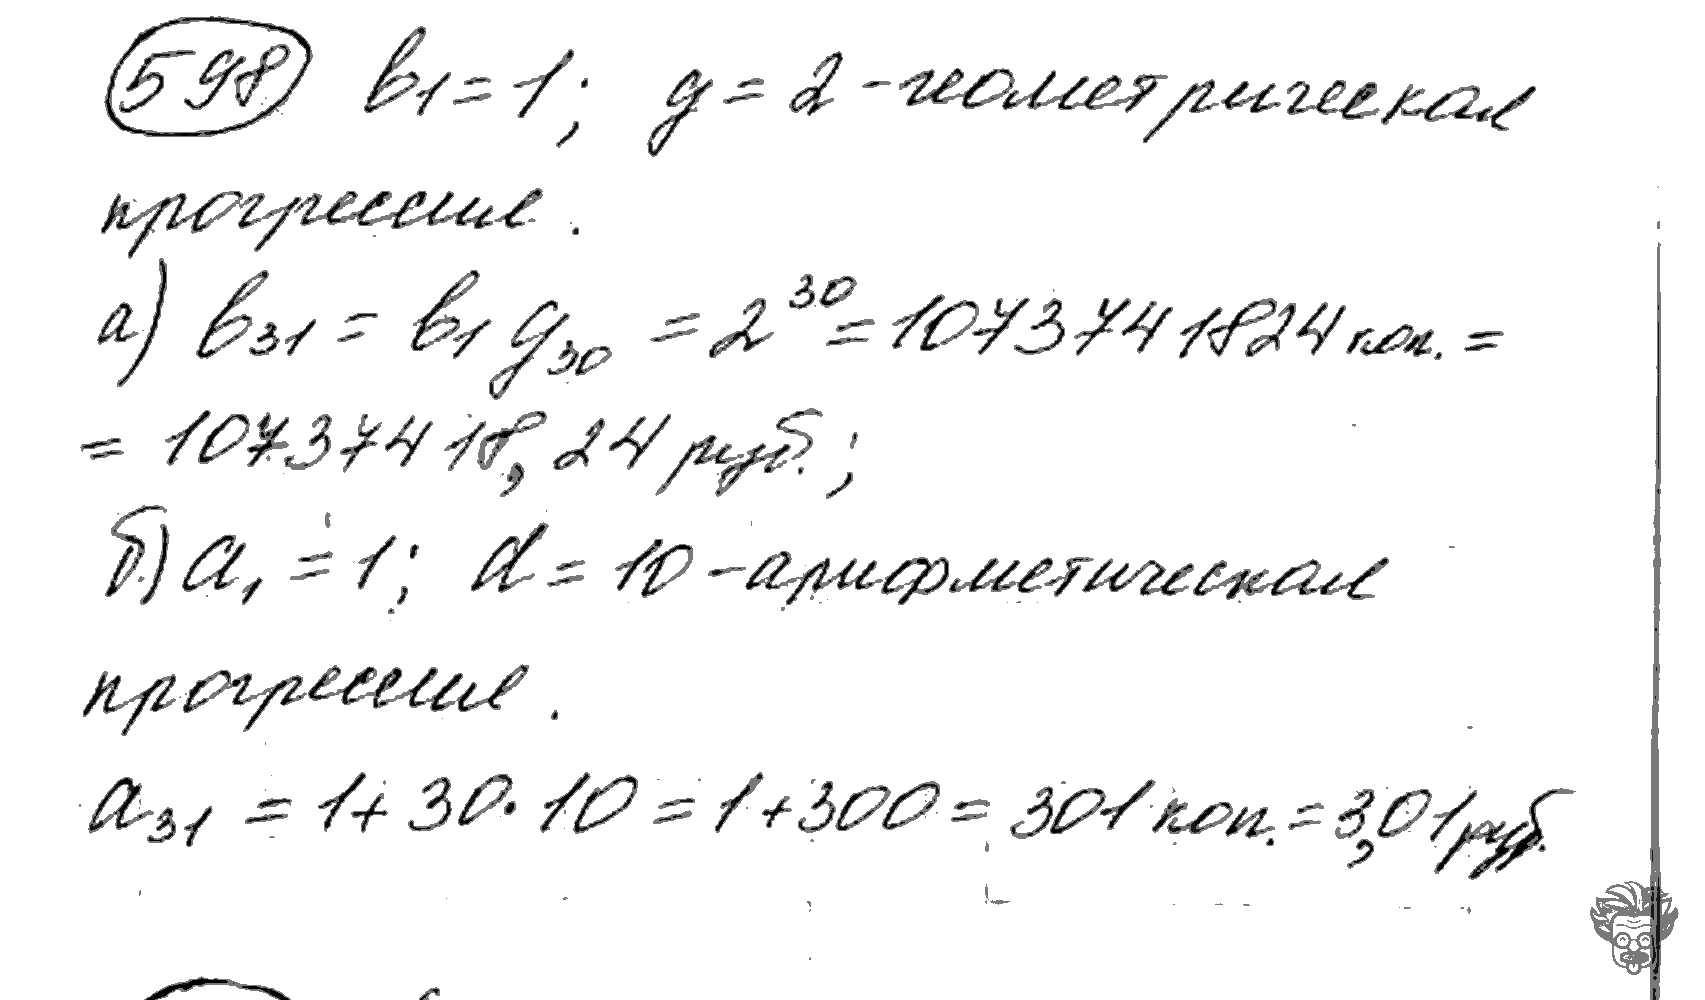 598 b₁ = 1; q = 2 - геометрическая
прогрессия.
а) b₃₁ = b₁ q₃₀ = 2³⁰ = 1073741824 коп. =
= 10737418,24 руб.;
б) a₁ = 1; d = 10 - арифметическая
прогрессия.
a₃₁ = 1 + 30 · 10 = 1 + 300 = 301 коп. = 3,01 руб.